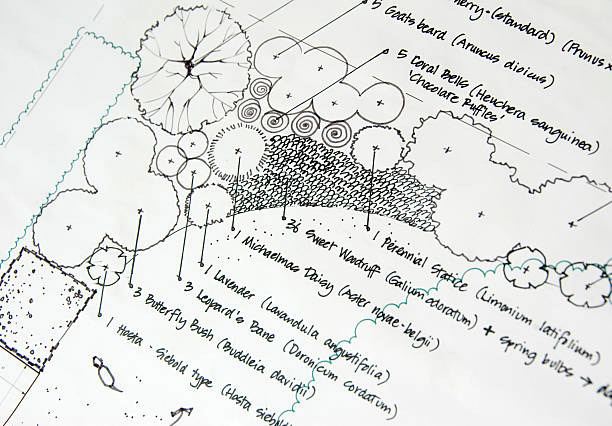 erry-(standard) (Prunus x
5 Goatsbeard (Aruncus dioicus)
5 Coral Bells (Heuchera sanguinea)
'Chocolate Ruffles'
1 Perennial Statice (Limonium latifolium)
36 Sweet Woodruff (Galium odoratum) + spring bulbs →
1 Michaelmas Daisy (Aster novae-belgii)
1 Lavender (Lavandula angustifolia)
3 Leopard's Bane (Doronicum cordatum)
3 Butterfly Bush (Buddleia davidii)
1 Hosta - Siebold type (Hosta siebold